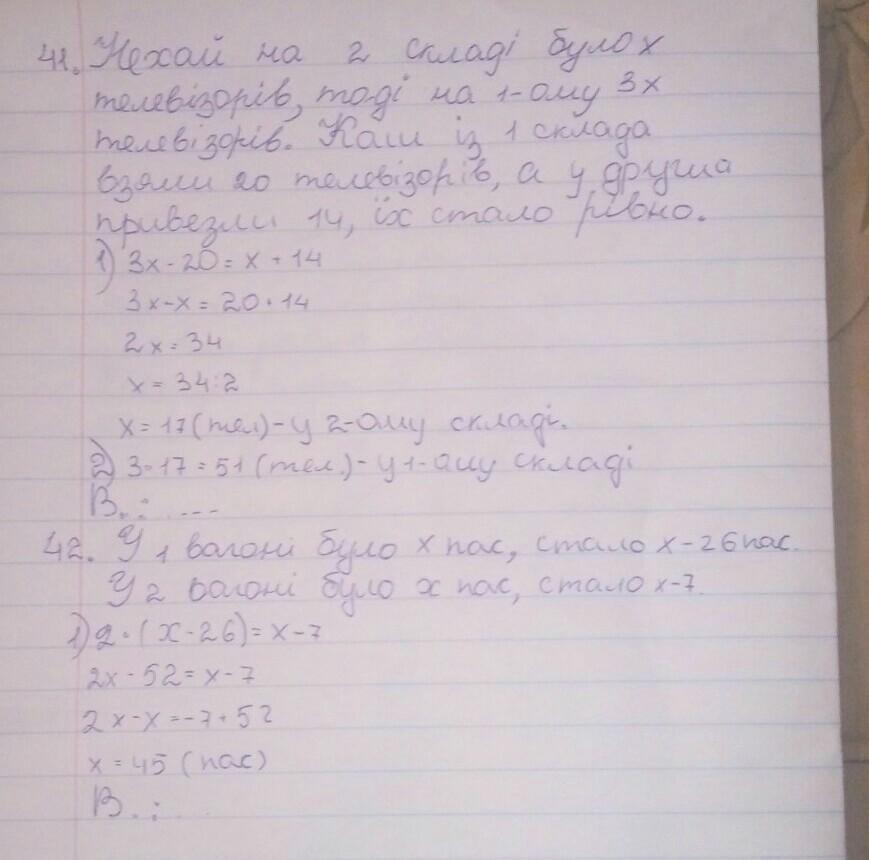 41. Нехай на 2 складі було х
телевізорів, тоді на 1-ому 3х
телевізорів. Коли із 1 склада
взяли 20 телевізорів, а у другий
привезли 14, їх стало рівно.
1) 3х-20=х+14
3х-х=20+14
2х=34
х=34:2
х=17(тел)-у 2-ому складі.
2) 3·17=51(тел.)-у 1-ому складі
В.: ...
42. У 1 вагоні було х пас, стало х-26пас.
У 2 вагоні було х пас, стало х-7.
1) 2·(х-26)=х-7
2х-52=х-7
2х-х=-7+52
х=45(пас)
В.: ...